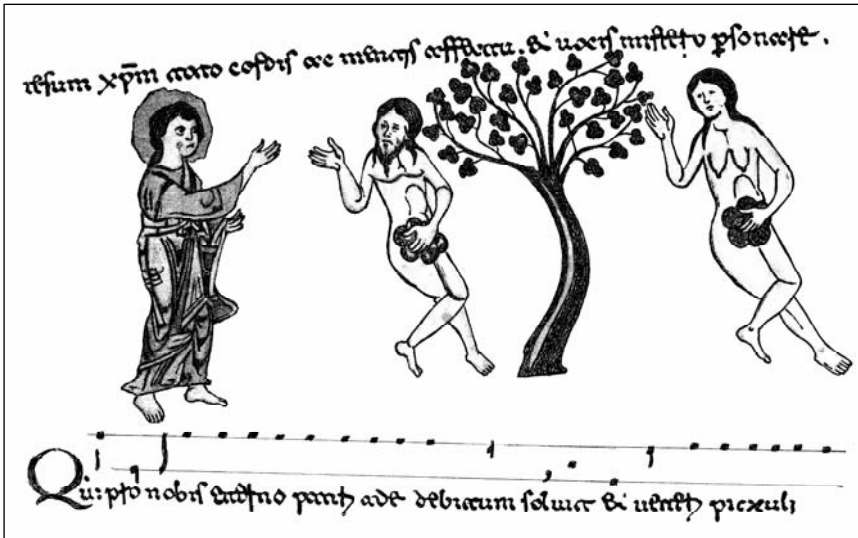 iesum xp̄m toto cordis ac mentis affectu. & uocis p̱sonare.
Qui p̱ nobis eterno patri ade debitum soluit & ueteris piaculi